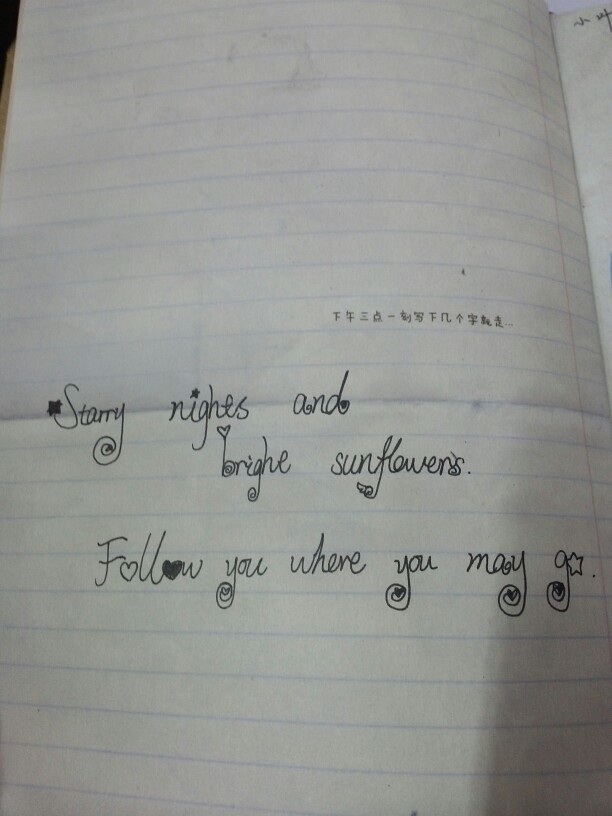 小叶
下午三点一刻写下几个字就走...
Starry nights and
bright sunflowers.
Follow you where you may go.